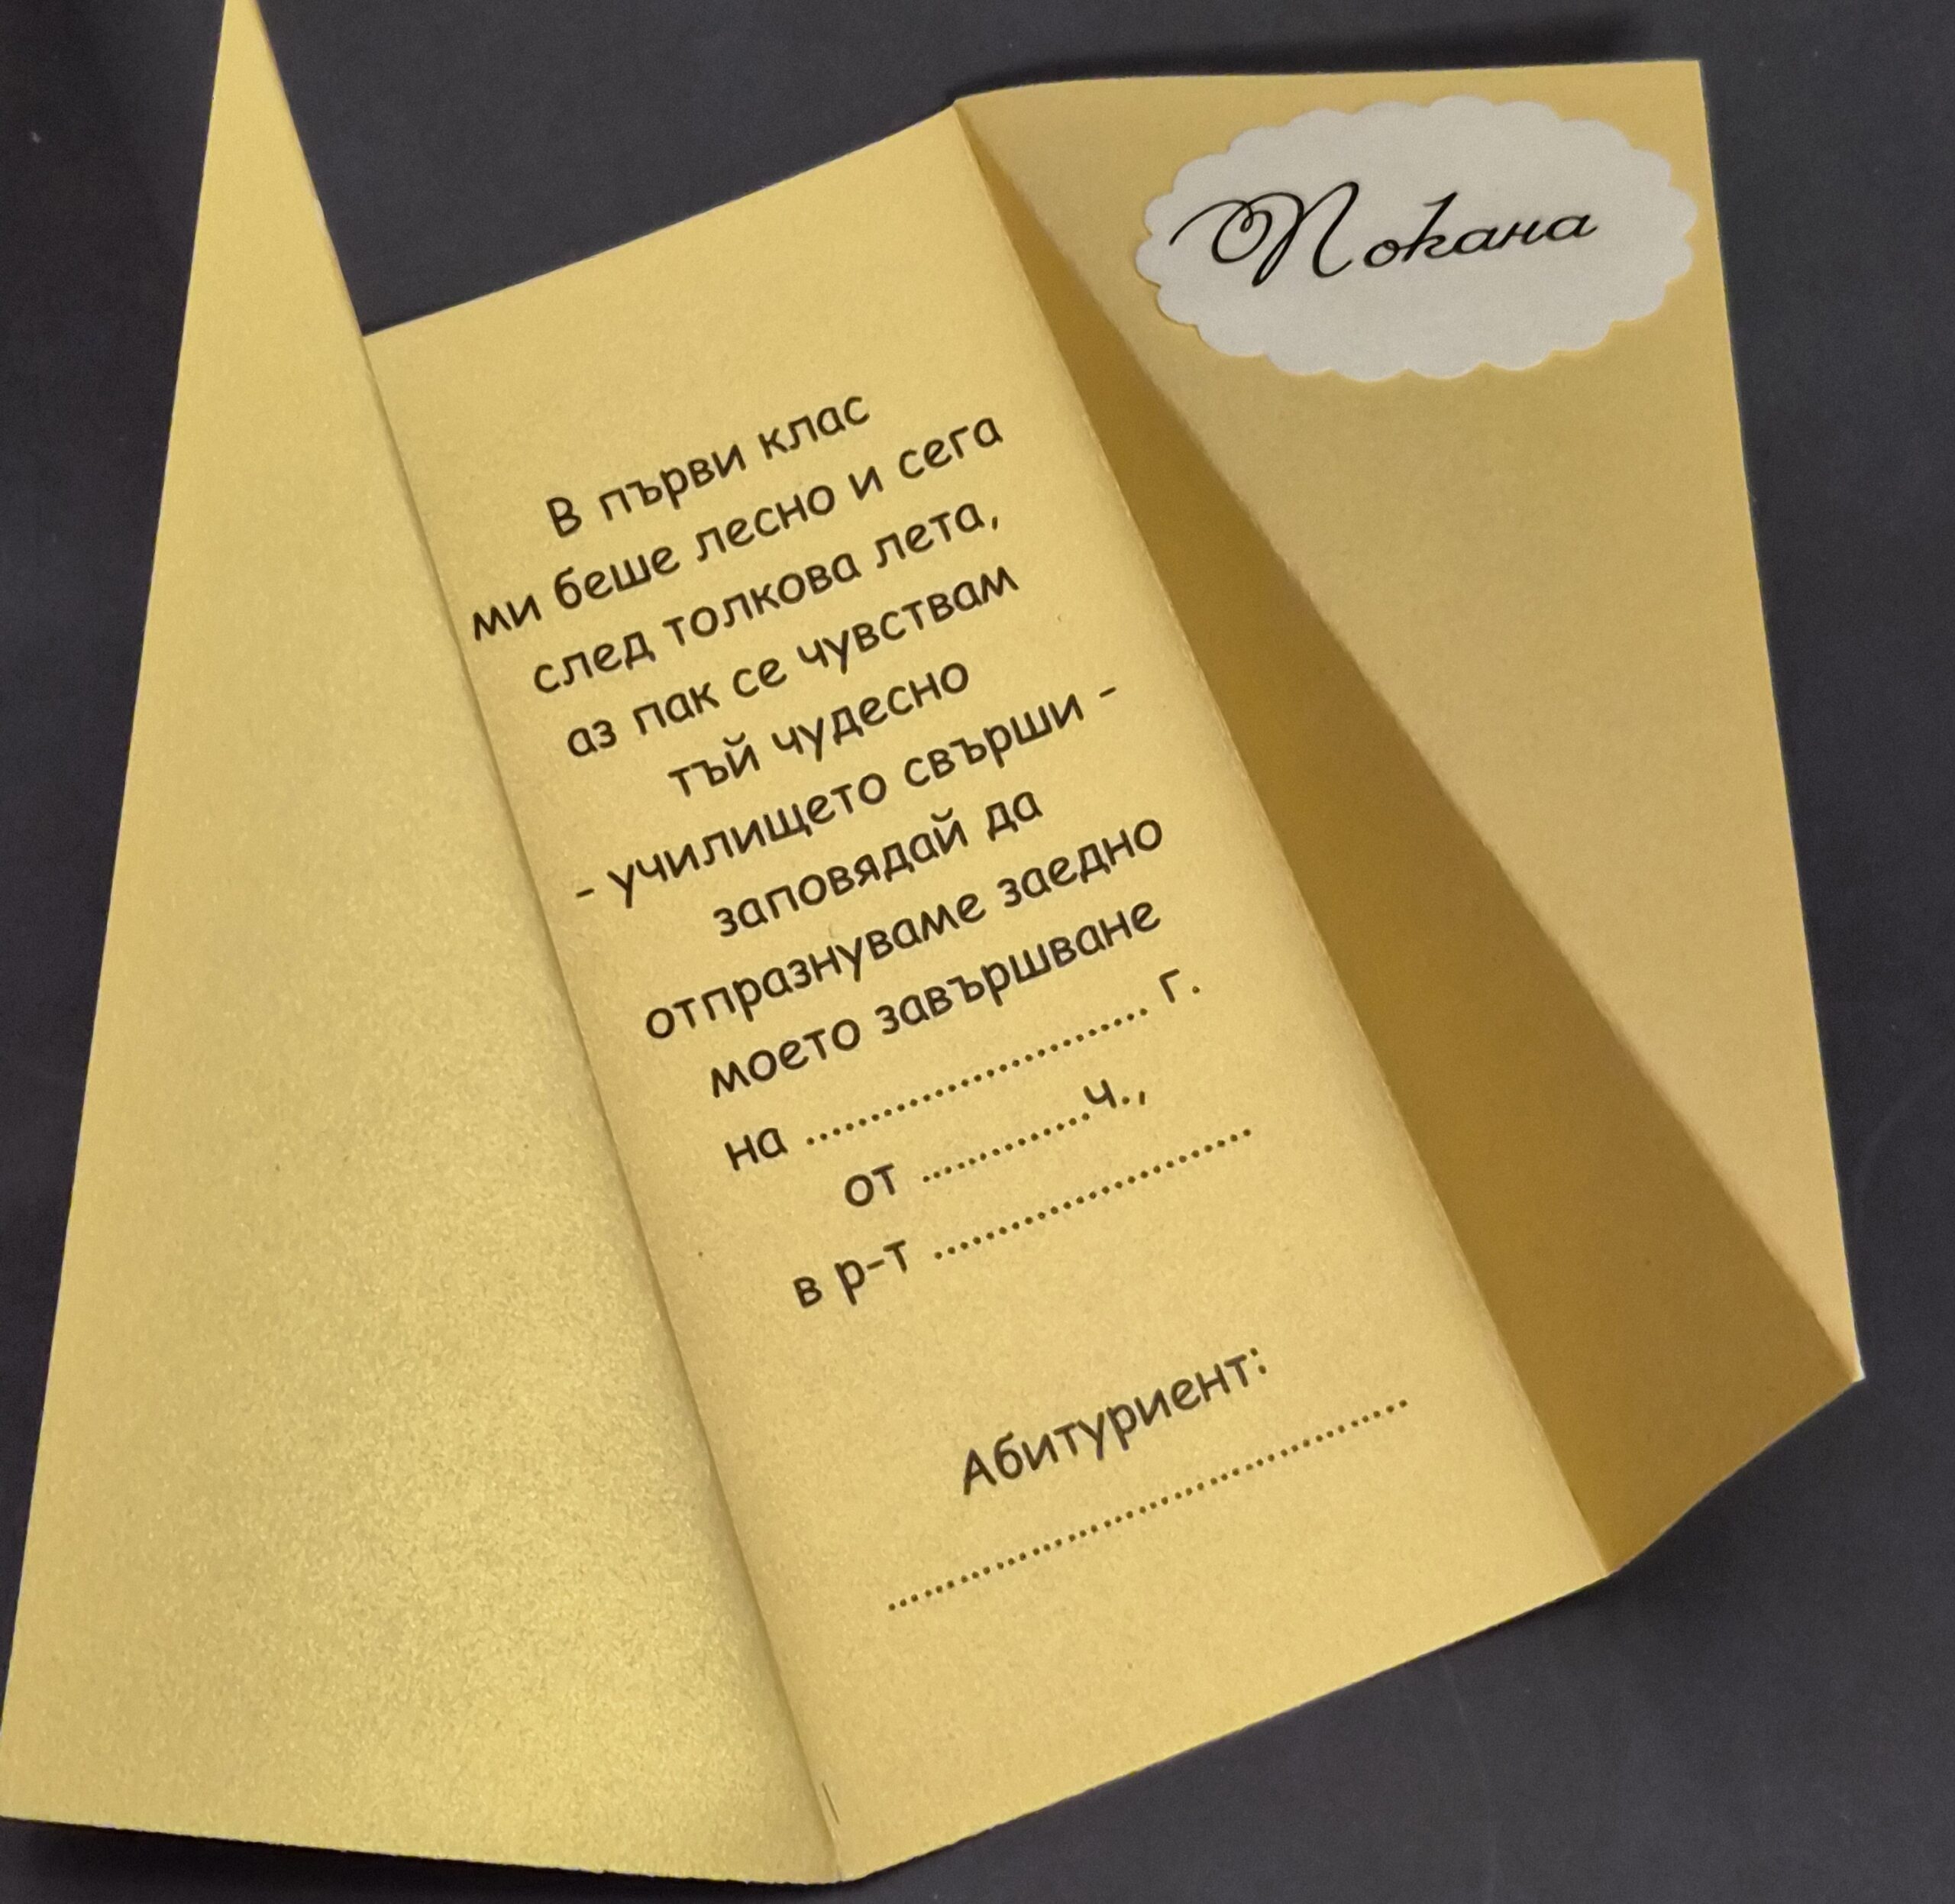 Покана
В първи клас
ми беше лесно и сега
след толкова лета,
аз пак се чувствам
тъй чудесно
- училището свърши -
заповядай да
отпразнуваме заедно
моето завършване
на .............................. г.
от ..............ч.,
в р-т ...........................
Абитуриент:
.............................................